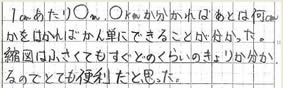 1cmあたり○m、○kmか分かればあとは何cm
かをはかればかん単にできることが分かった。
縮図は小さくてもすぐどのくらいのきょりか分か
るのでとても便利だと思った。